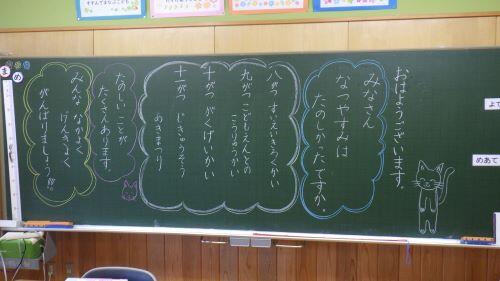 おはようございます。
みなさん
なつやすみは
たのしかったですか。
八がつ すいえいきろくかい
九がつ こどもえんとの
こうりゅうかい
十がつ がくげいかい
十一がつ じきゅうそう
あきまつり
たのしいことが
たくさんあります。
みんな なかよく
げんきよく
がんばりましょう!!!
まめ
めあて